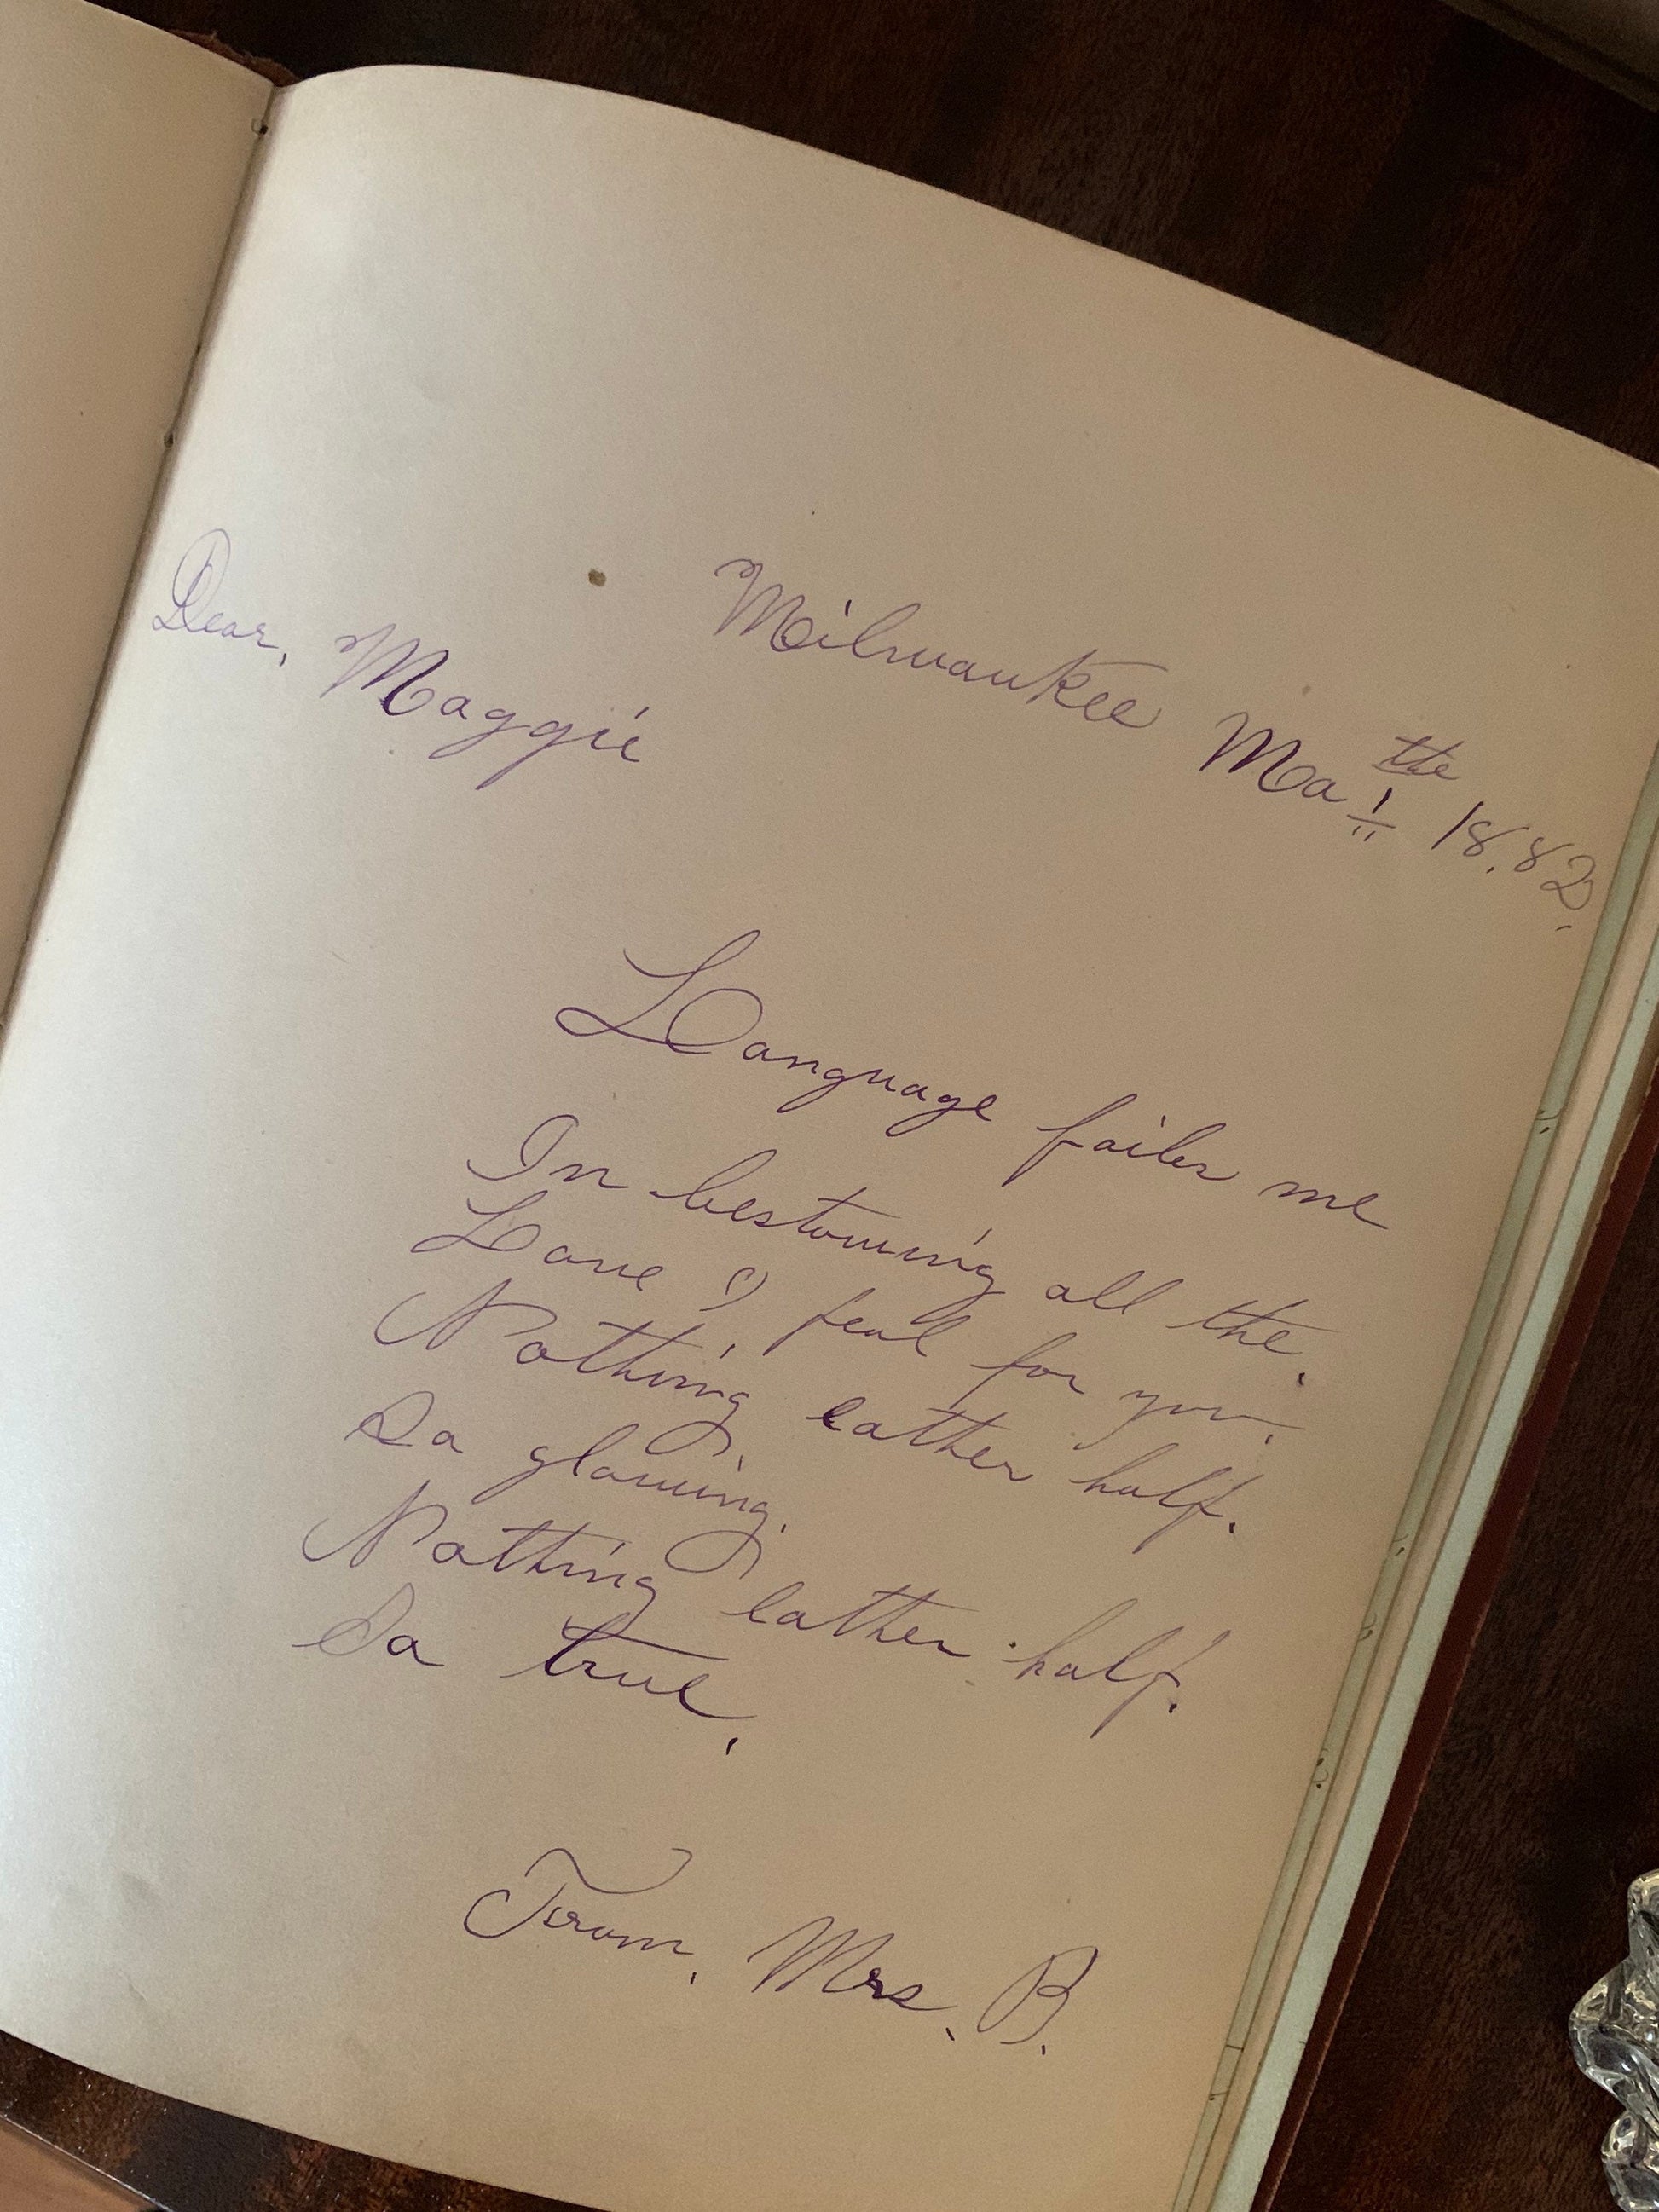 Milwaukee Ma 1 the 18.82.
Dear, Maggie
Language failes me
In bestowing all the.
Love I feal for you.
Nothing eather half.
So glowing.
Nothing eather half.
So true.
From. Mrs. B.